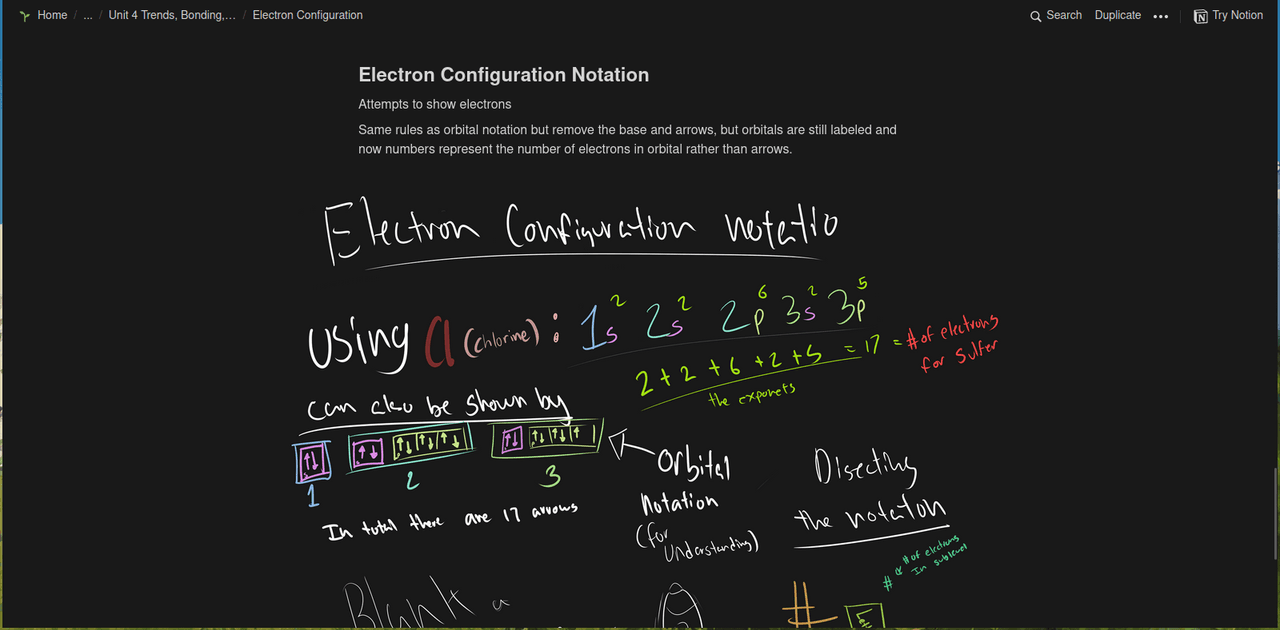 Home / ... / Unit 4 Trends, Bonding,... / Electron Configuration Search Duplicate ••• Try Notion
Electron Configuration Notation
Attempts to show electrons
Same rules as orbital notation but remove the base and arrows, but orbitals are still labeled and
now numbers represent the number of electrons in orbital rather than arrows.
Electron Configuration notatio
using Cl (chlorine) : 1s² 2s² 2p⁶ 3s² 3p⁵
2+2+6+2+5 = 17 = # of electrons
for Sulfer
the exponets
can also be shown by
1 2 3
In total there are 17 arrows
Orbital
Notation
(for
Understanding)
Disecting
the notaton
# # of electrons
In sublevel
Blank
#
E